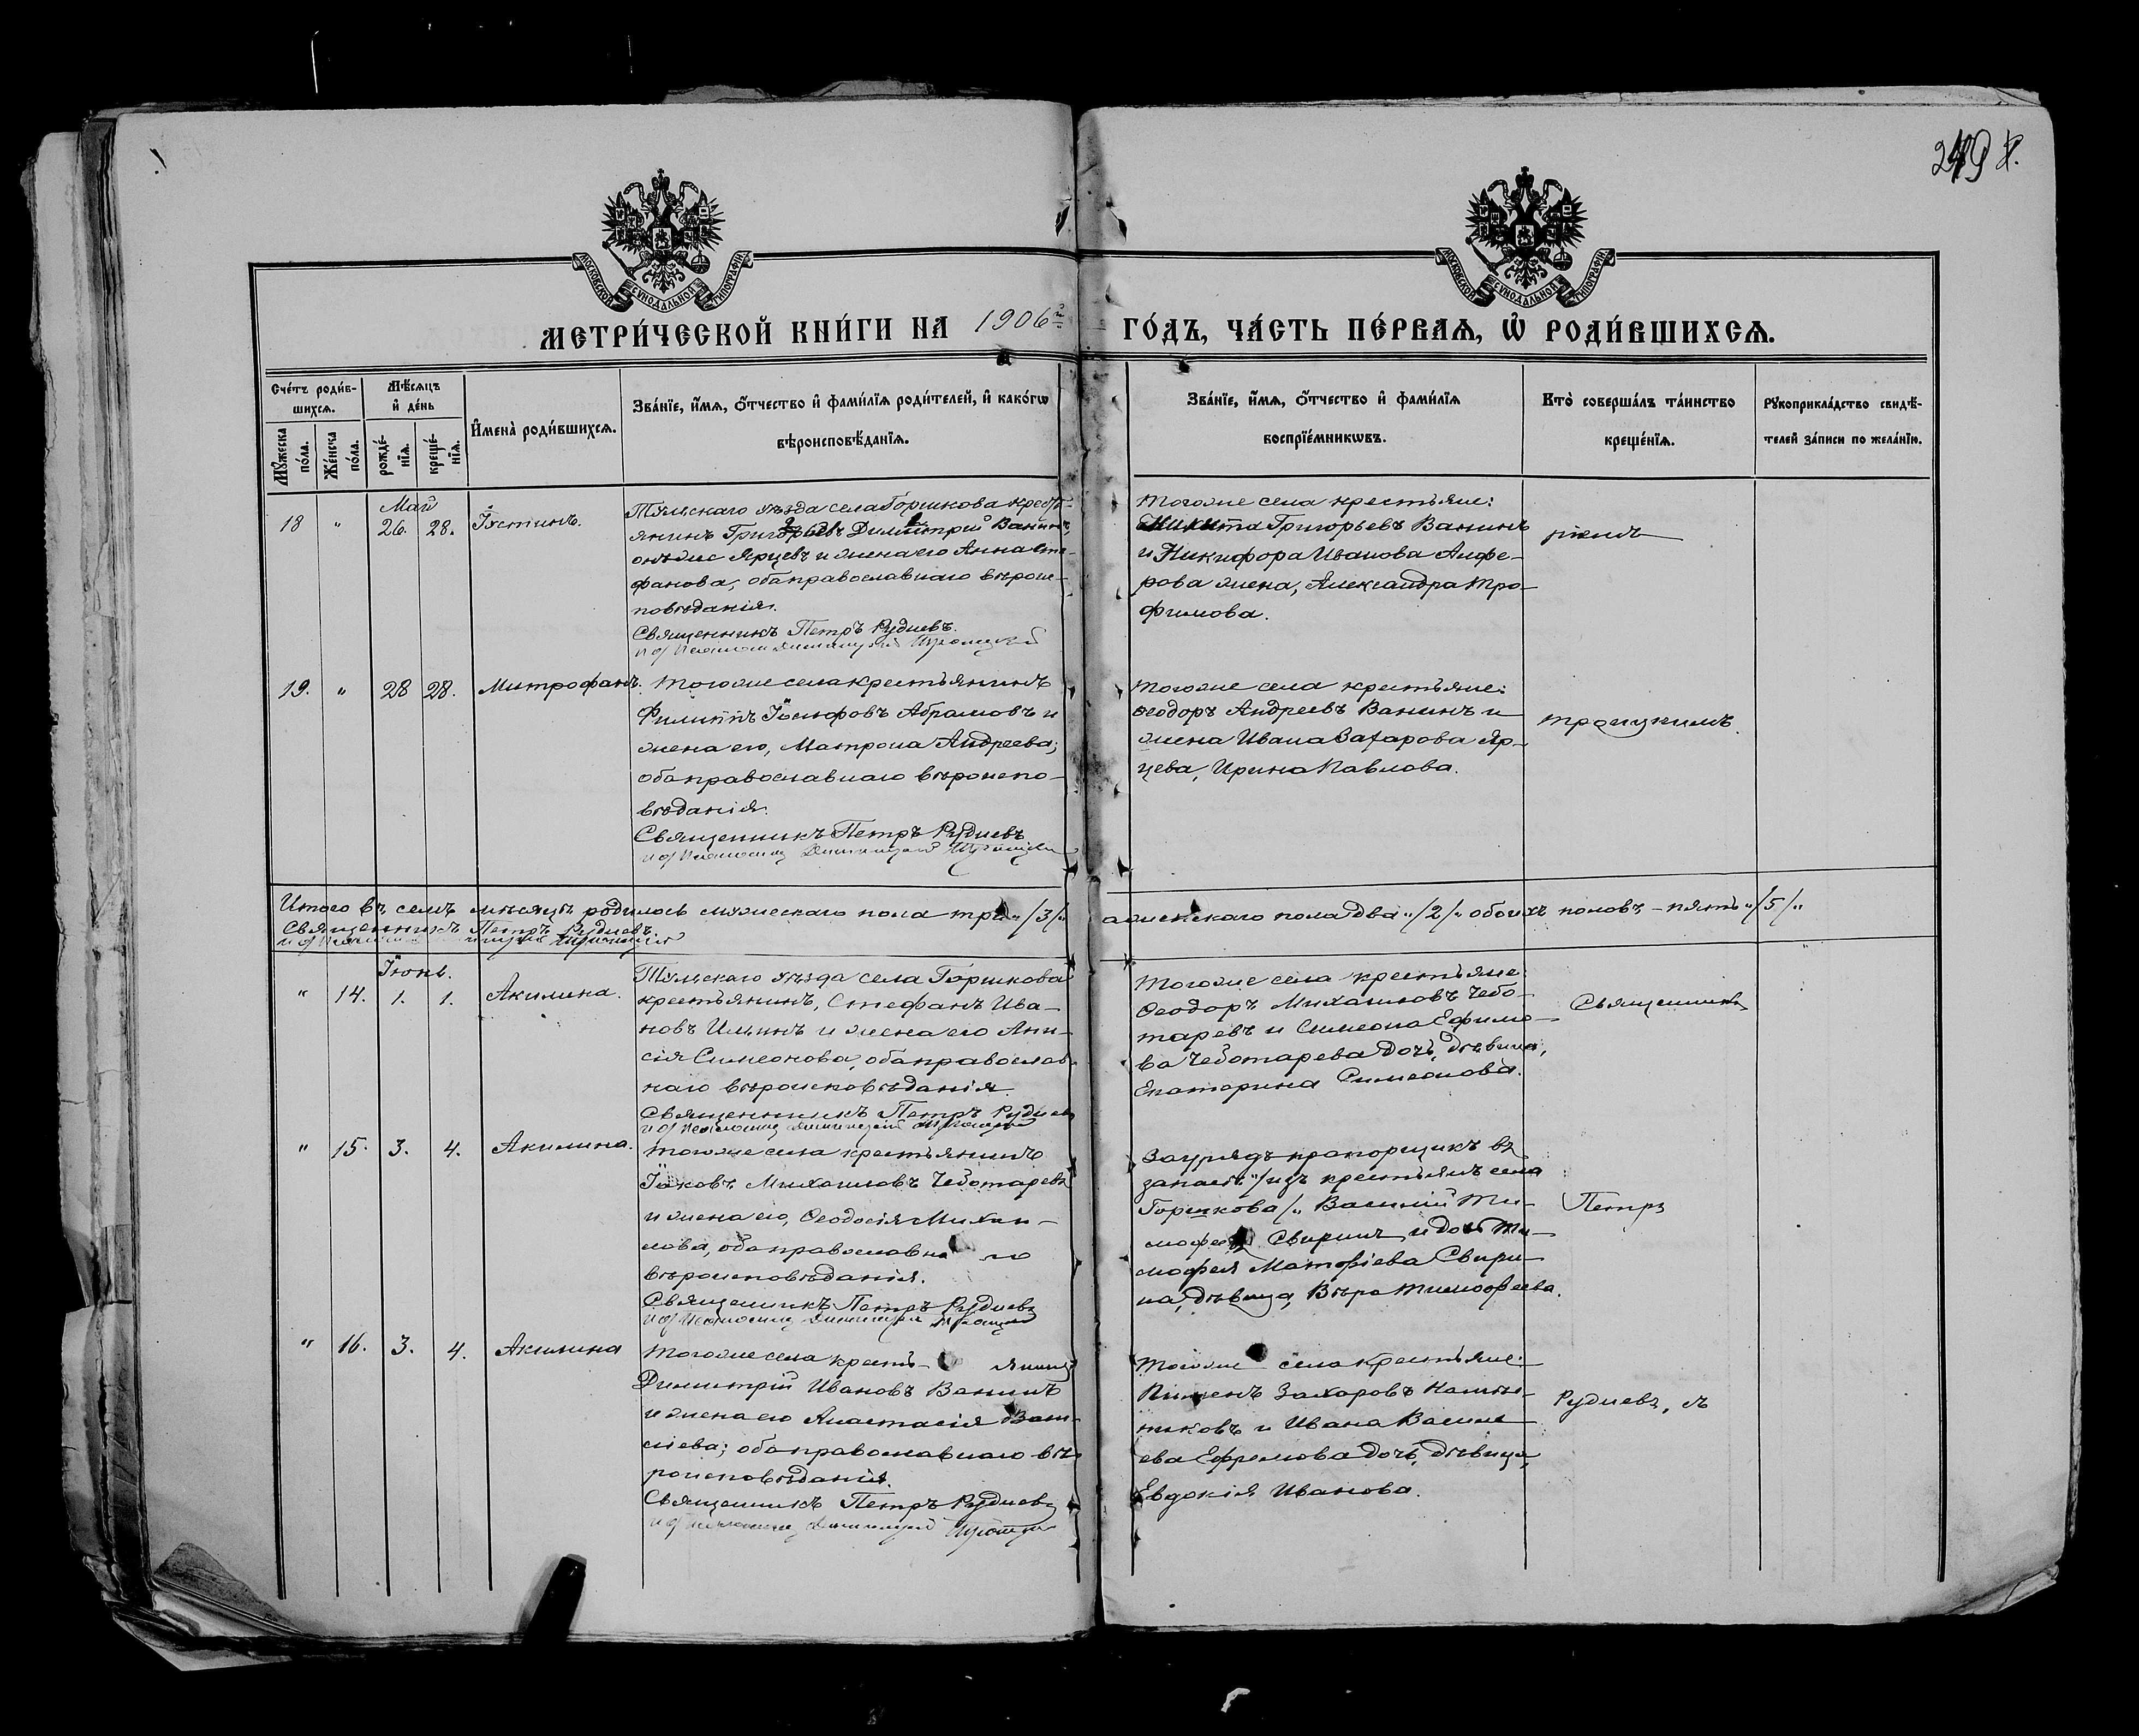 249
МОСКОВСКОЙ СѴНОДАЛЬНОЙ ТИПОГРАФІИ
МОСКОВСКОЙ СѴНОДАЛЬНОЙ ТИПОГРАФІИ
МЕТРИ́ЧЕСКОЙ КНИ́ГИ НА 1906й ГО́ДЪ, ЧА́СТЬ ПЕ́РВАѦ, Ѡ҆ РОДИ́ВШИХСѦ.
Сче́тъ роди́в-
шихсѧ.
Мꙋ́жеска по́ла.
Же́нска по́ла.
Мѣ́сѧцъ
и҆ де́нь
рожде́-
нїѧ.
креще́-
нїѧ.
И҆мена̀ роди́вшихсѧ.
Зва́нїе, и҆́мѧ, ѻ҆́тчество и҆ фами́лїѧ роди́телей, и҆ како́гѡ
вѣроисповѣ́данїѧ.
Зва́нїе, и҆́мѧ, ѻ҆́тчество и҆ фами́лїѧ
воспрїе́мникѡвъ.
Кто̀ соверша́лъ та́инство
креще́нїѧ.
Рꙋкоприкла́дство свидѣ́-
телей за́писи по жела́нїю.
Май
18 " 26. 28. Іустинъ.
Тульскаго уѣзда села Горшкова кресть-
янинъ Григорьевъ Димитрій Ванинъ,
онъ же Ярцевъ и жена его Анна Сте-
фанова, оба православнаго вѣроис-
повѣданія.
Священникъ Петръ Рудневъ.
Тогоже села крестьяне:
Никита Григорьевъ Ванинъ
и Никифора Иванова Алфе-
рова жена, Александра Тро-
фимова.
19. " 28 28. Митрофанъ.
Тогоже села крестьянинъ
Филиппъ Іосифовъ Абрамовъ и
жена его, Матрона Андреева;
оба православнаго вѣроиспо-
вѣданія.
Священникъ Петръ Рудневъ
Тогоже села крестьяне:
Ѳеодоръ Андреевъ Ванинъ и
жена Ивана Захарова Яр-
цева, Ирина Павлова.
Троицкимъ.
Итого въ семъ мѣсяцѣ родилось мужескаго пола три "/3/" а женскаго пола два "/2/" обоихъ половъ - пять "/5/"
Священникъ Петръ Рудневъ
Іюнь.
" 14. 1. 1. Акилина.
Тульскаго уѣзда села Горшкова
крестьянинъ, Стефанъ Ива-
новъ Ильинъ и жена его Ани-
сія Симеонова, оба православ-
наго вѣроисповѣданія.
Священникъ Петръ Рудневъ
Тогоже села крестьяне:
Ѳеодоръ Михаиловъ Чебо-
таревъ и Симеона Ефимо-
ва Чеботарева дочь, дѣвица,
Екатерина Симеонова.
Священникъ
" 15. 3. 4. Акилина.
Тогоже села крестьянинъ
Іаковъ Михаиловъ Чеботаревъ
и жена его, Ѳеодосія Михаи-
лова, оба православнаго
вѣроисповѣданія.
Священникъ Петръ Рудневъ
Зауряд прапорщикъ въ
запасѣ "/изъ крестьянъ села
Горшкова/" Василій Ти-
мофеевъ Свиринъ и дочь Ти-
мофея Матѳіева Свири-
на, дѣвица, Вѣра Тимофеева.
Петръ
" 16. 3. 4. Акилина
Тогоже села крестьянинъ
Димитрій Ивановъ Ванинъ
и жена его Анастасія Васи-
сіева; оба православнаго вѣ-
роисповѣданія.
Священникъ Петръ Рудневъ
Тогоже села крестьяне:
Пименъ Захаровъ
и Ивана Василь
ева Ефремова дочь, дѣвица,
Евдокія Иванова.
Рудневъ, съ